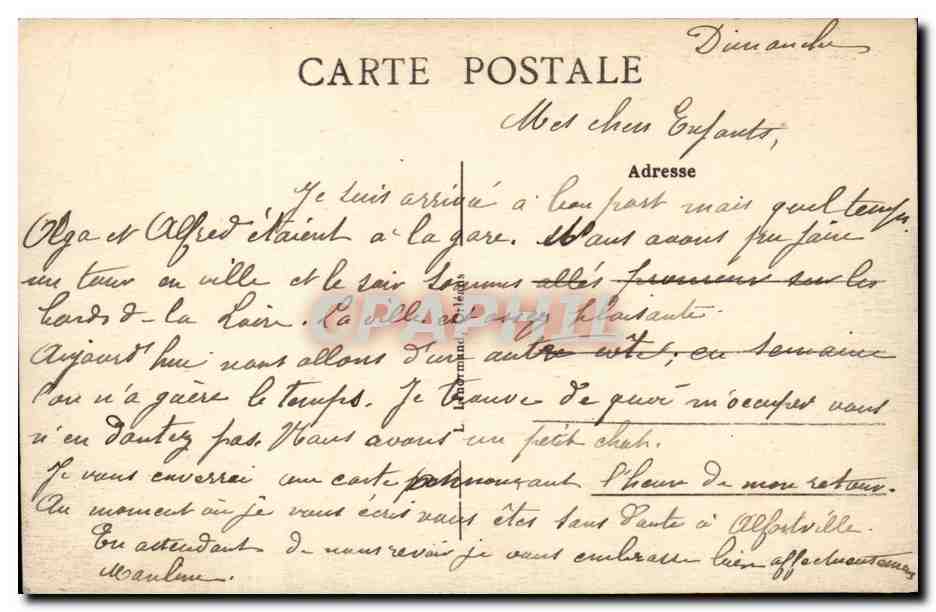 Dimanche
CARTE POSTALE
Mes chers Enfants,
Adresse
Je suis arrivée à bon port mais quel temps.
Olga et Alfred étaient à la gare. Nous avons pu faire
un tour en ville et le soir sommes allés promener sur les
bords de la Loire. La ville est assez plaisante.
Aujourd'hui nous allons d'un autre côté, en semaine
l'on n'a guère le temps. Je trouve de quoi m'occuper vous
n'en doutez pas. Nous avons un petit chat.
Je vous enverrai une carte pour l'heure de mon retour.
Au moment où je vous écris vous êtes sans doute à Alfortville.
En attendant de nous revoir je vous embrasse bien affectueusement
L. Lenormand, Orléans
CPAPHIL